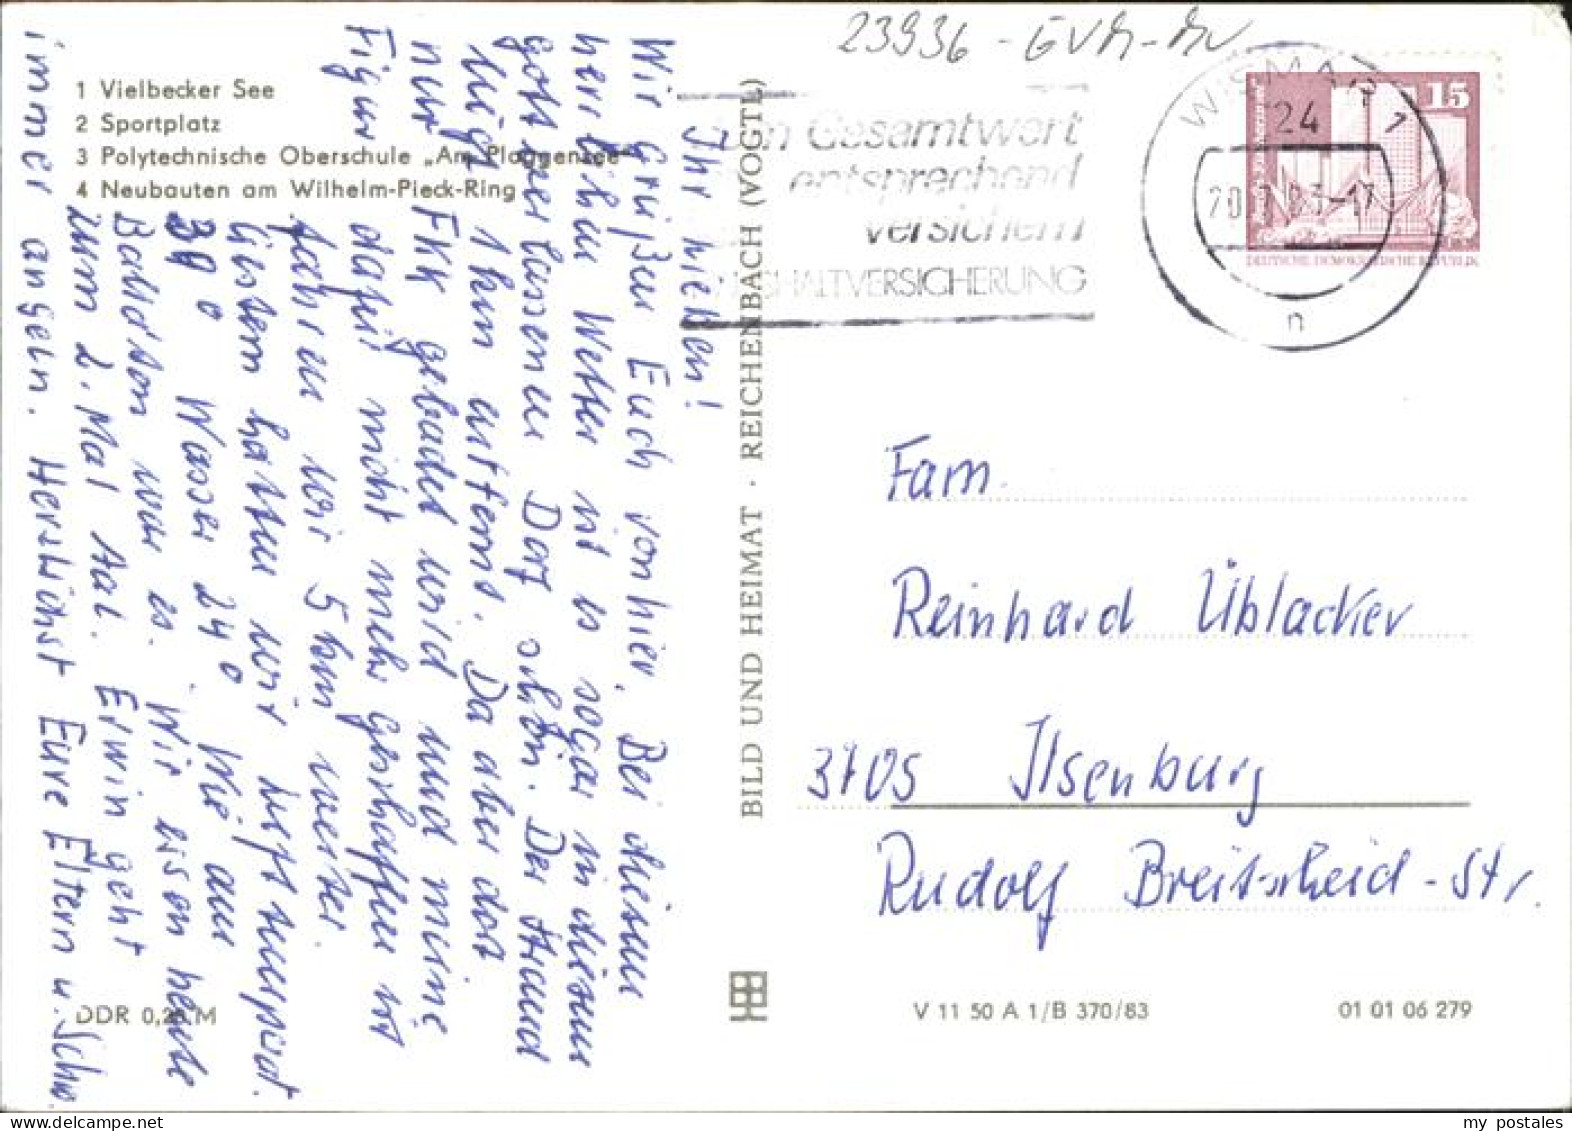 23936 - GVM-MV
1 Vielbecker See
2 Sportplatz
3 Polytechnische Oberschule „Am Ploggensee"
4 Neubauten am Wilhelm-Pieck-Ring
Ihr Lieben!
Wir grüßen Euch von hier. Bei diesem
herrlichen Wetter ist es sogar in diesem
gottverlassenen Dorf schön. Der Strand
liegt 1 km entfernt. Da aber dort
nur FKK gebadet wird und meine
Figur dafür nicht mehr geschaffen ist
fahren wir 5 km weiter.
Gestern hatten wir Lufttemperat.
39° Wasser 24° Wie am
Balaton war es. Wir essen heute
zum 2. Mal Aal. Erwin geht
immer angeln. Herzlichst Eure Eltern u. Schw.
DDR 0,20 M
BILD UND HEIMAT · REICHENBACH (VOGTL)
Gesamtwert
entsprechend
versichern
HAUSHALTVERSICHERUNG
WISMAR 1
24
n
15
DEUTSCHE DEMOKRATISCHE REPUBLIK
Fam.
Reinhard Üblacker
3705 Ilsenburg
Rudolf Breitscheid-Str.
V 11 50 A 1/B 370/83
01 01 06 279
my postales